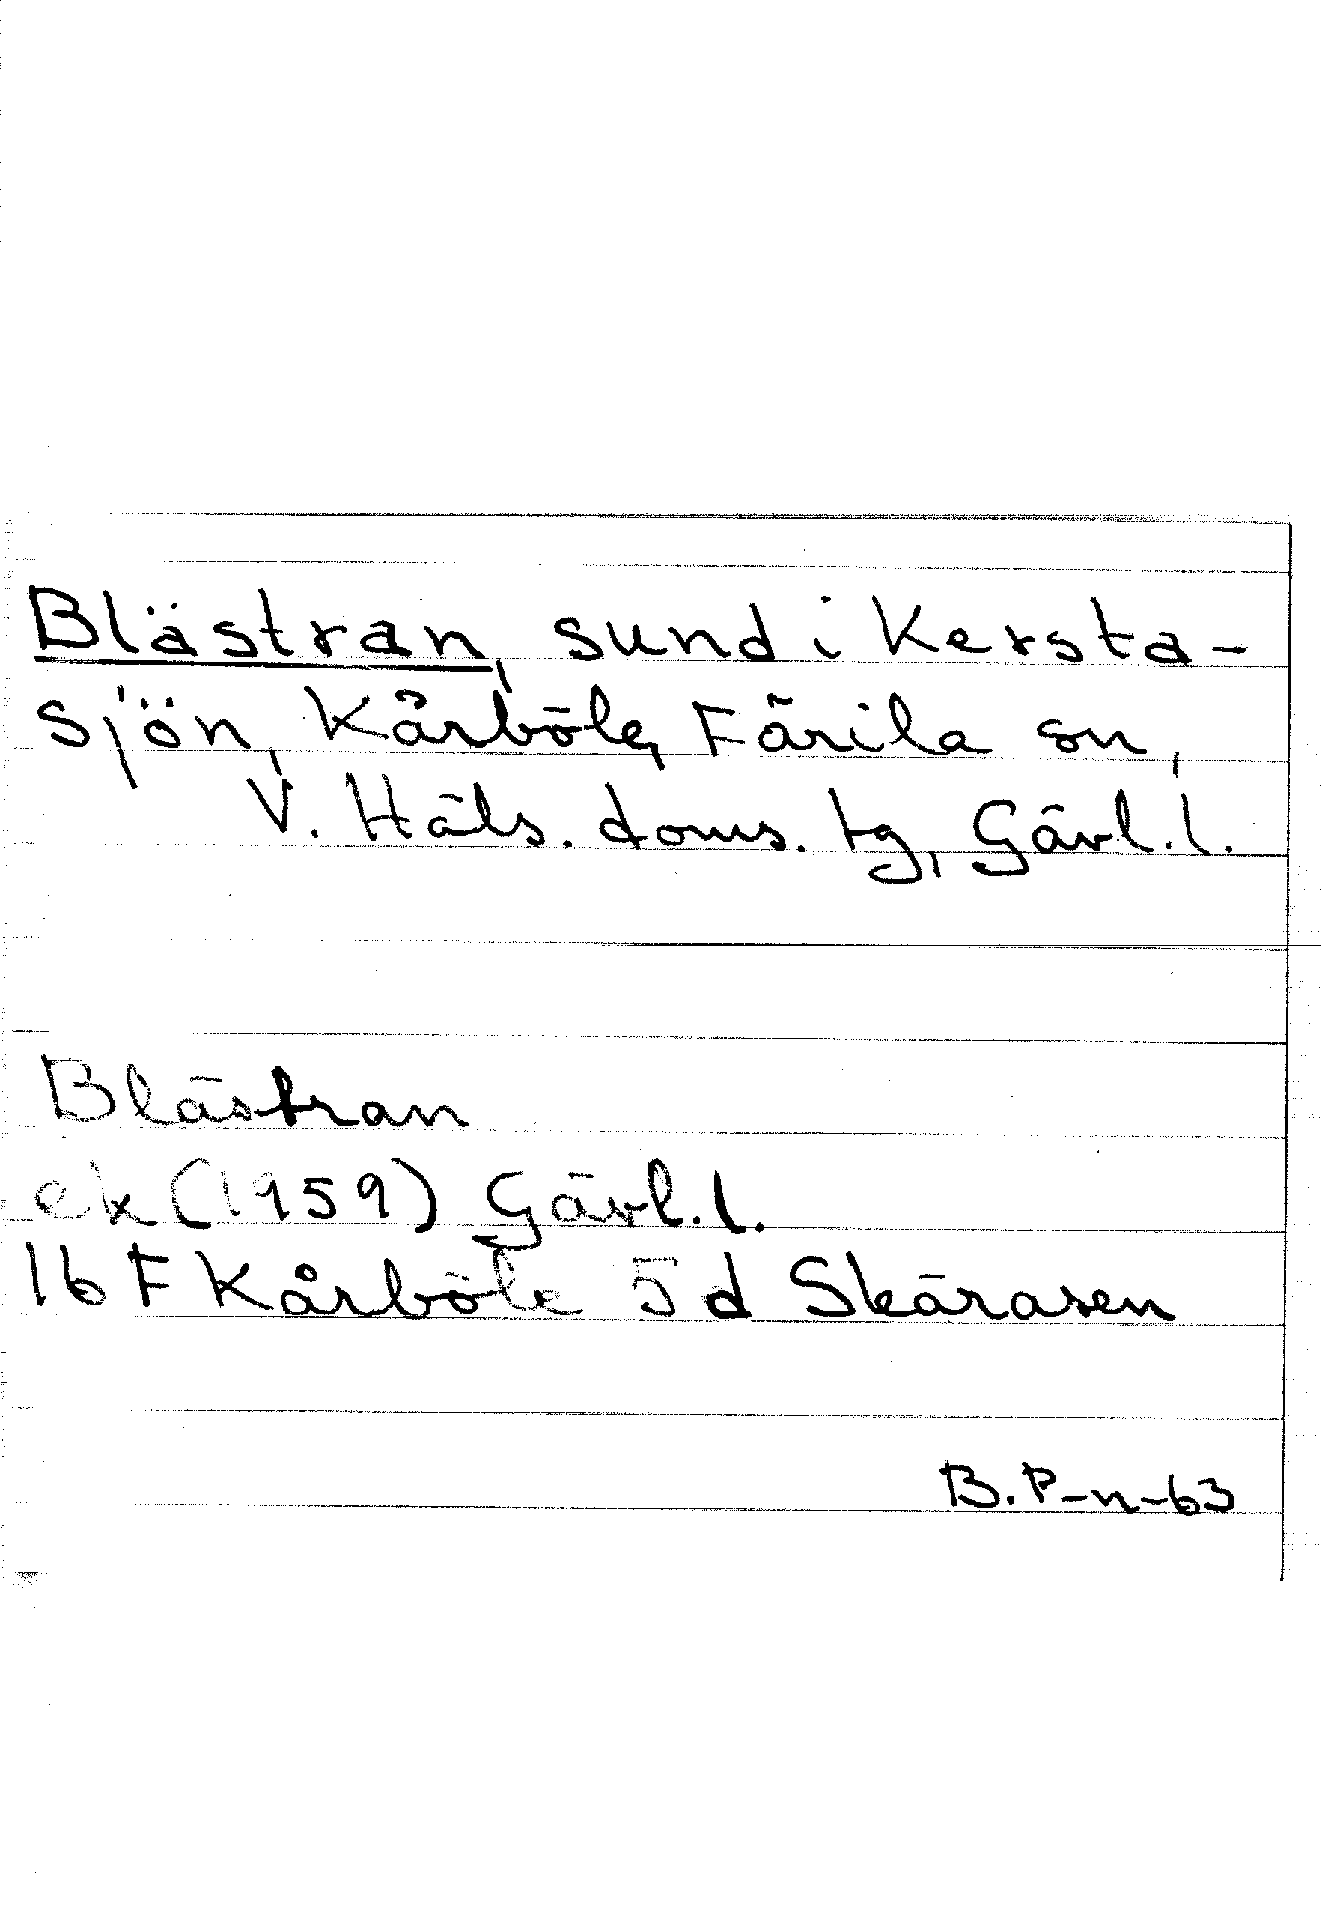 Blästran, sund i Kersta-
sjön, Kårböle, Färila sn,
V. Häls. doms. tg, Gävl. l.
Blästran
ek (1959) Gävl. l.
16 F Kårböle 5 d Skärasen
B. P-n-63